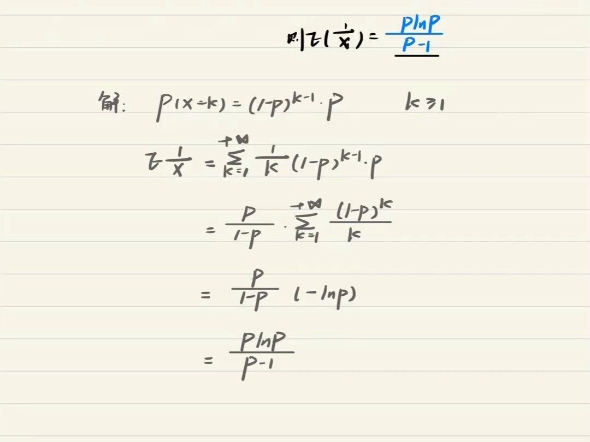 则E(1/X) = plnp/(p-1)
解: P(X=k) = (1-p)^{k-1}·p k≥1
E 1/X = ∑_{k=1}^{+∞} 1/k (1-p)^{k-1}·p
= p/(1-p) · ∑_{k=1}^{+∞} (1-p)^k/k
= p/(1-p) (-lnp)
= plnp/(p-1)